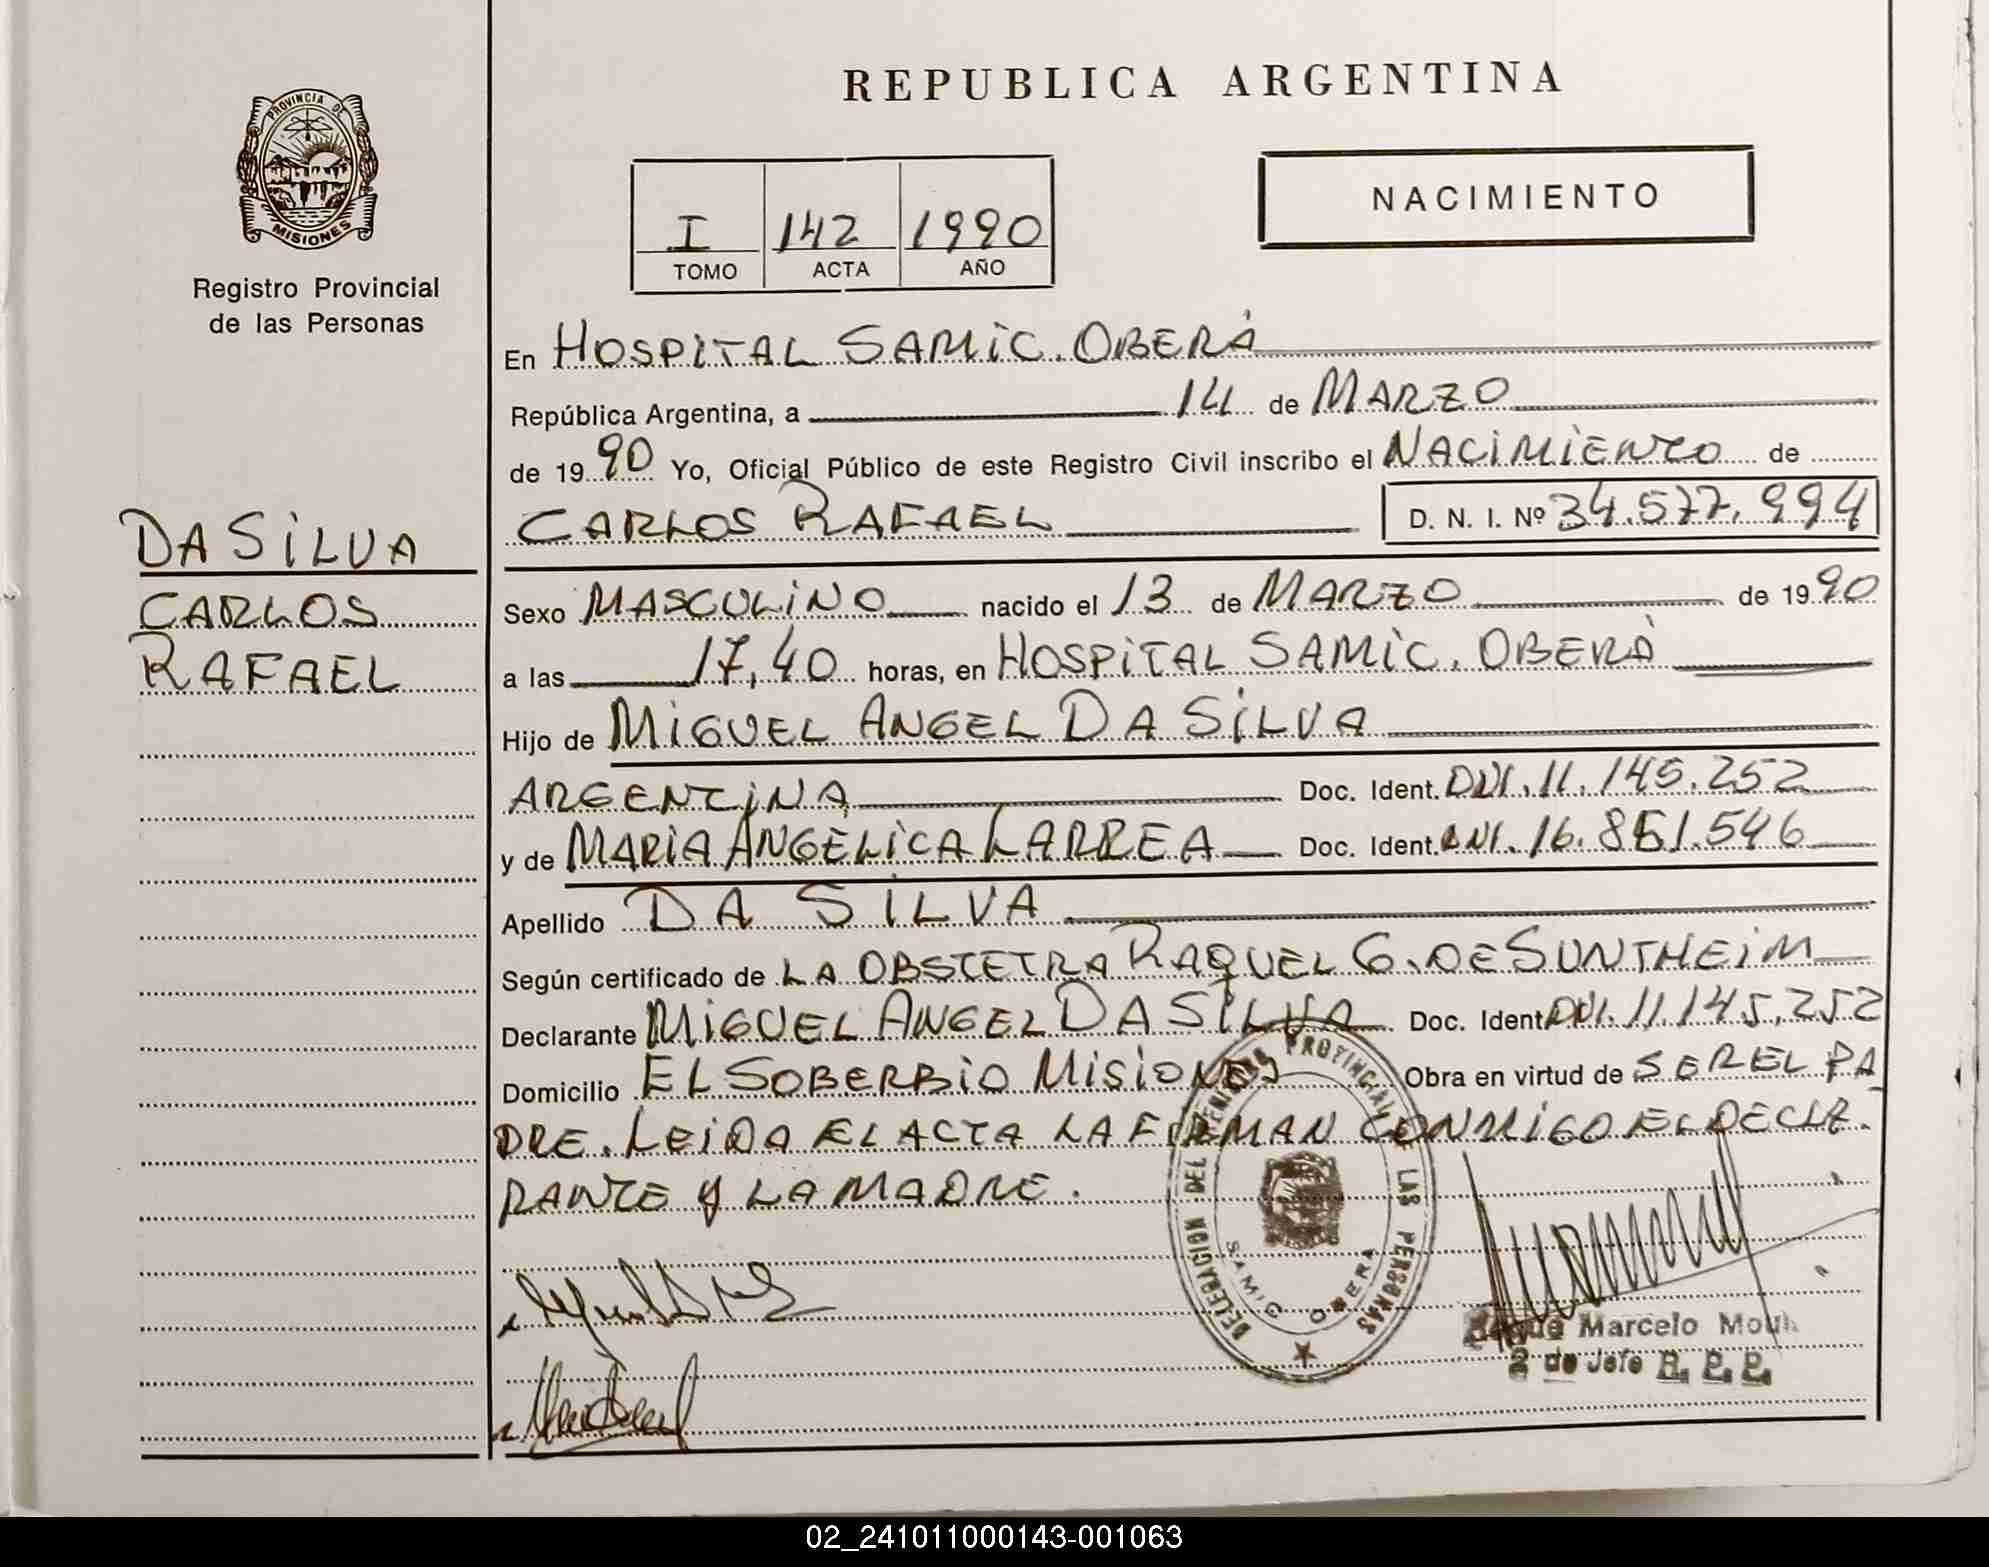 PROVINCIA DE
MISIONES
Registro Provincial
de las Personas
DA SILVA
CARLOS
RAFAEL
REPUBLICA ARGENTINA
I 142 1990
TOMO ACTA AÑO
NACIMIENTO
En HOSPITAL SAMIC. OBERÁ
República Argentina, a 14 de MARZO
de 1990 Yo, Oficial Público de este Registro Civil inscribo el NACIMIENTO de
CARLOS RAFAEL D. N. I. Nº 34.577.994
Sexo MASCULINO nacido el 13 de MARZO de 1990
a las 17,40 horas, en HOSPITAL SAMIC. OBERÁ
Hijo de MIGUEL ANGEL DA SILVA
ARGENTINA Doc. Ident. DNI. 11.145.252
y de MARIA ANGÉLICA LARREA Doc. Ident. DNI. 16.851.546
Apellido DA SILVA
Según certificado de LA OBSTETRA RAQUEL G. DE SUNTHEIM
Declarante MIGUEL ANGEL DA SILVA Doc. Ident. DNI. 11.145.252
Domicilio EL SOBERBIO MISIONES Obra en virtud de SER EL PA
DRE. LEIDA EL ACTA LA FIRMAN CONMIGO EL DECLA-
RANTE Y LA MADRE.
DELEGACION DEL REGISTRO PROVINCIAL DE LAS PERSONAS
SAMIC OBERA
Marcelo
2 do Jefe R. P. P.
02_241011000143-001063